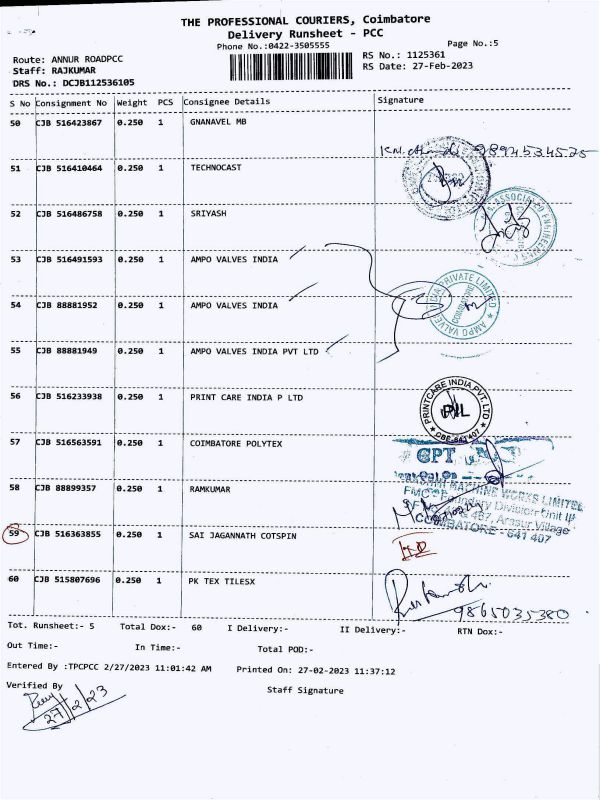 THE PROFESSIONAL COURIERS, Coimbatore
Delivery Runsheet - PCC
Phone No.:0422-3505555
Page No.:5
Route: ANNUR ROADPCC
RS No.: 1125361
Staff: RAJKUMAR
RS Date: 27-Feb-2023
DRS No.: DCJB112536105
S No Consignment No Weight PCS Consignee Details Signature
50 CJB 516423867 0.250 1 GNANAVEL MB
9894534525
51 CJB 516410464 0.250 1 TECHNOCAST
52 CJB 516486758 0.250 1 SRIYASH
ASSOCIATED ENGINEERING
53 CJB 516491593 0.250 1 AMPO VALVES INDIA
54 CJB 88881952 0.250 1 AMPO VALVES INDIA
AMPO VALVES INDIA PRIVATE LIMITED
COIMBATORE
55 CJB 88881949 0.250 1 AMPO VALVES INDIA PVT LTD
56 CJB 516233938 0.250 1 PRINT CARE INDIA P LTD
PRINTCARE INDIA PVT. LTD
CBE-641 407
57 CJB 516563591 0.250 1 COIMBATORE POLYTEX
CPT
58 CJB 88899357 0.250 1 RAMKUMAR
MACHINE WORKS LIMITED
FMC - Foundry Division Unit III
467, Arasur Village
COIMBATORE - 641 407
59 CJB 516363855 0.250 1 SAI JAGANNATH COTSPIN
60 CJB 515807696 0.250 1 PK TEX TILESX
9865035380
Tot. Runsheet:- 5 Total Dox:- 60 I Delivery:- II Delivery:- RTN Dox:-
Out Time:- In Time:- Total POD:-
Entered By :TPCPCC 2/27/2023 11:01:42 AM Printed On: 27-02-2023 11:37:12
Verified By
Staff Signature
27/2/23